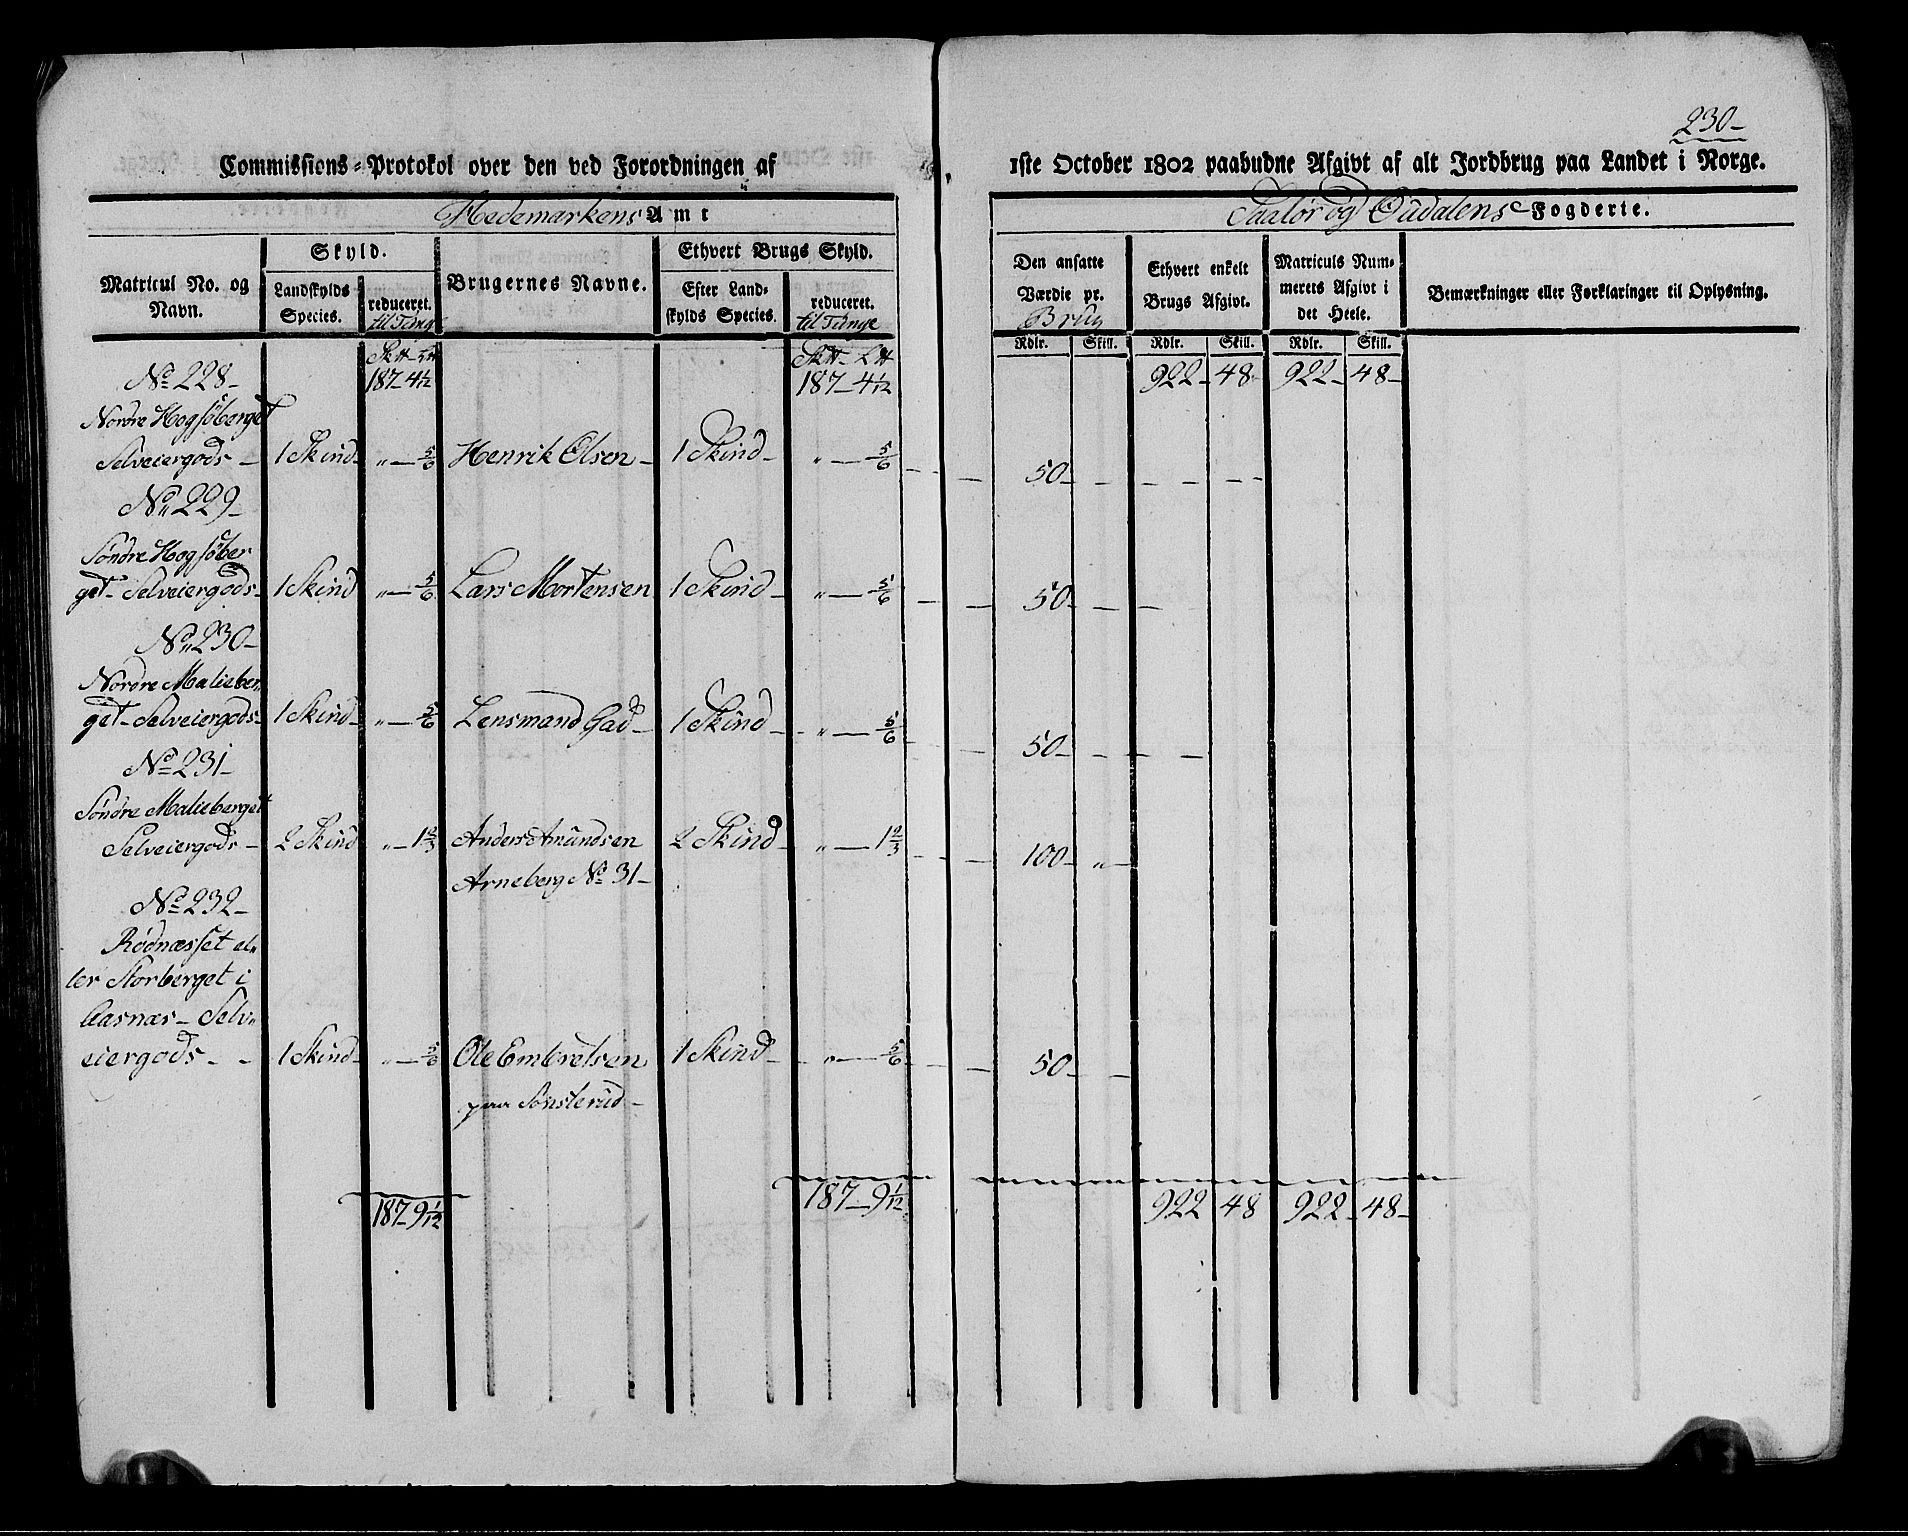 230-
Commissions-Protokol over den ved Forordningen af 1ste October 1802 paabudne Afgivt af alt Jordbrug paa Landet i Norge.
Hedemarkens Amt
Soelør og Oudalens Fogderie.
Matricul No. og Navn.
Skyld.
Landskylds Species.
reduceret. til Tunge
Brugernes Navne.
Ethvert Brugs Skyld.
Efter Landskylds Species.
reduceret. til Tunge
Den ansatte Værdie pr. Brug
Ethvert enkelt Brugs Afgivt.
Matriculs Nummerets Afgivt i det Heele.
Bemærkninger eller Forklaringer til Oplysning.
Rdlr. Skill. Rdlr. Skill. Rdlr. Skill.
187-4 1/12 187-4 1/12 922-48- 922-48-
No 228-
Nordre Hogsøberget
Selveiergods - 1 Skind- „ - 5/6 Henrik Olsen - 1 Skind- „ - 5/6 - - 50- - - - -
No 229-
Søndre Hogsøber
get- Selveiergods- 1 Skind „ - 5/6 Lars Mortensen 1 Skind - „ - 5/6 - - 50- - - -
No 230-
Nordre Malieber„
get- Selveiergods- 1 Skind- „ - 5/6 Lensmand Gad- 1 Skind - „ - 5/6 - - 50- - - -
No 231-
Søndre Malieberget
Selveiergods - 2 Skind „ - 1 2/3 Anders Amundsen 2 Skind - „ - 1 2/3 - - 100- „ -
Arneberg No 31-
No 232-
Rødnæsset el„
ler Storberget i
Aasnæs - Selv„
eiergods - - 1 Skind- „ - 5/6 Ole Embretsen 1 Skind - „ - 5/6 - - 50- -
paa Sønsterud-
187-9 1/12 187-9 1/12 922 48 922-48-